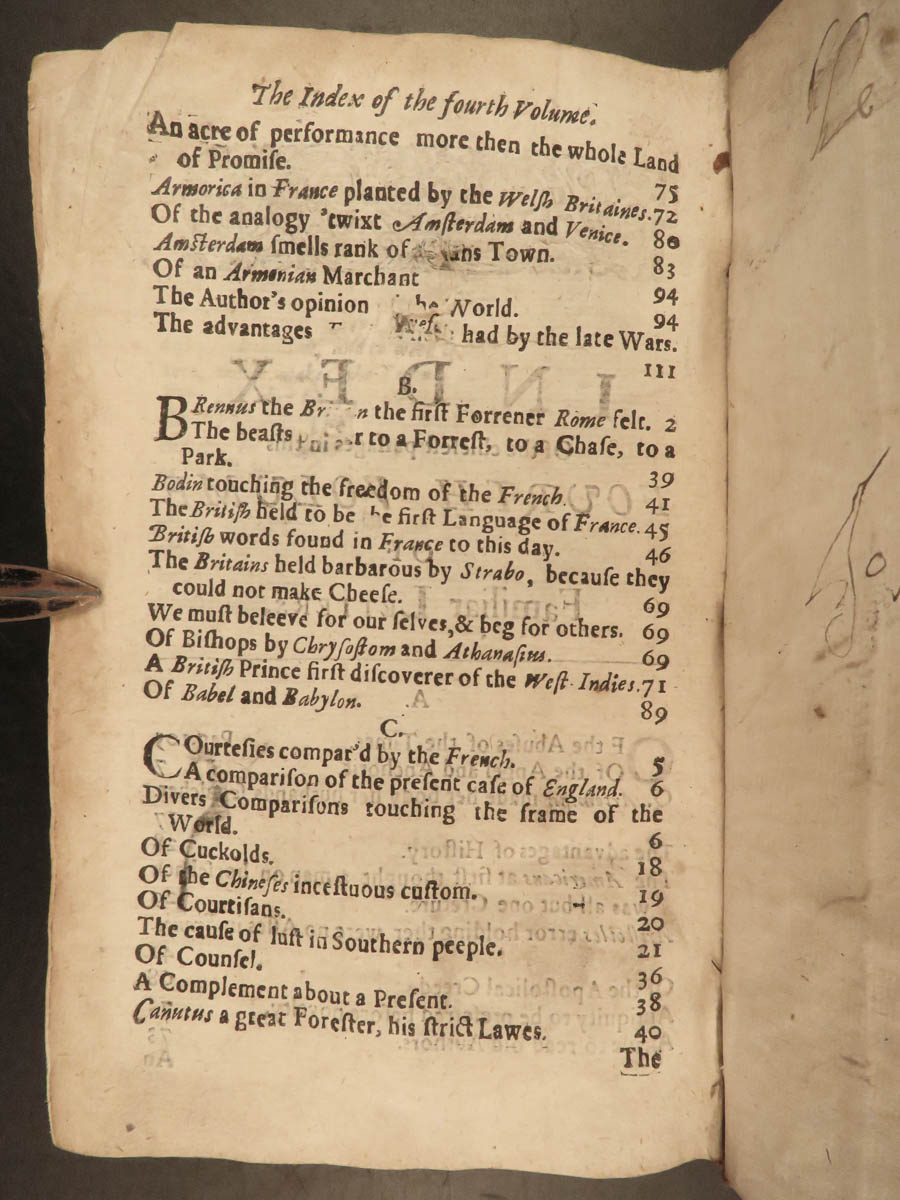 The Index of the fourth Volume.
An acre of performance more then the whole Land
of Promiſe. 75
Armorica in France planted by the Welſh Britaines. 72
Of the analogy 'twixt Amſterdam and Venice. 80
Amſterdam ſmells rank of Town. 83
Of an Armenian Marchant 94
The Author's opinion World. 94
The advantages had by the late Wars.
111
B.
BRennus the the firſt Forrener Rome felt. 2
The beaſts to a Forreſt, to a Chaſe, to a
Park. 39
Bodin touching the freedom of the French. 41
The Britiſh held to be firſt Language of France. 45
Britiſh words found in France to this day. 46
The Britains held barbarous by Strabo, becauſe they
could not make Cheeſe. 69
We muſt beleeve for our ſelves, & beg for others. 69
Of Biſhops by Chryſoſtom and Athanaſius. 69
A Britiſh Prince firſt diſcoverer of the Weſt Indies. 71
Of Babel and Babylon. 89
C.
COurteſies compar'd by the French. 5
A compariſon of the preſent caſe of England. 6
Divers Compariſons touching the frame of the
World. 6
Of Cuckolds. 18
Of the Chineſes inceſtuous cuſtom. 19
Of Courtiſans. 20
The cauſe of luſt in Southern peeple. 21
Of Counſel. 36
A Complement about a Preſent. 38
Canutus a great Foreſter, his ſtrict Lawes. 40
The